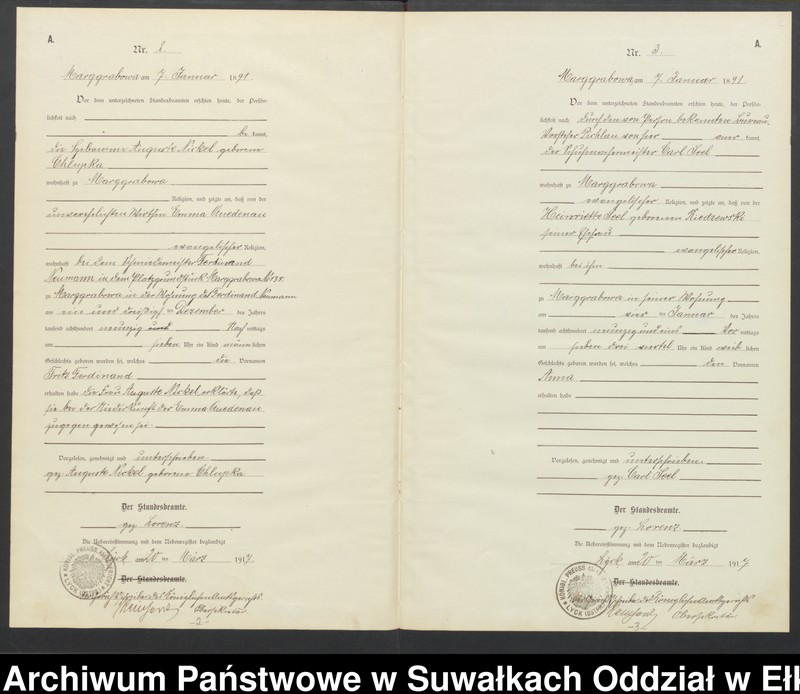 A.
Nr. 2.
Marggrabowa am 7. Januar 1891.
Vor dem unterzeichneten Standesbeamten erschien heute, der Persön-
lichkeit nach
be kannt,
die Hebamme Auguste Nickel geborene
Chlupka
wohnhaft zu Marggrabowa
Religion, und zeigte an, daß von der
unverehelichten Wirthin Emma Quedenau
evangelischer Religion,
wohnhaft bei dem Schmiedemeister Ferdinand
Neumann in dem Platzgrundstück Marggrabowa Nr.
zu Marggrabowa in der Wohnung des Ferdinand Neumann
am ein und dreißigsten Dezember des Jahres
tausend achthundert neunzig und Nach mittags
um sieben Uhr ein Kind männlichen
Geschlechts geboren worden sei, welches die Vornamen
Fritz Ferdinand
erhalten habe. Die Frau Auguste Nickel erklärte, daß
sie bei der Niederkunft der Emma Quedenau
zugegen gewesen sei.
Vorgelesen, genehmigt und unterschrieben
gez. Auguste Nickel geborene Chlupka
Der Standesbeamte.
gez. Lorenz
Die Uebereinstimmung mit dem Nebenregister beglaubigt
Lyck am 20 ten März 1917.
Der Standesbeamte.
Gerichtsschreiber des Königlichen Amtsgerichts
Obersekretär
-2-
A.
Nr. 3.
Marggrabowa, am 7. Januar 1891
Vor dem unterzeichneten Standesbeamten erschien heute, der Persön-
lichkeit nach durch den von Person bekannten Bureau-
vorsteher Pichlau von hier aner kannt,
der Schuhmachermeister Carl Seel
wohnhaft zu Marggrabowa
evangelischer Religion, und zeigte an, daß von der
Henriette Seel geborenen Kiedzewski
seiner Ehefrau
evangelischer Religion,
wohnhaft bei ihm
zu Marggrabowa in seiner Wohnung
am vier ten Januar des Jahres
tausend achthundert neunzig und eins Vor mittags
um sieben drei viertel Uhr ein Kind weib lichen
Geschlechts geboren worden sei, welches den Vornamen
Anna
erhalten habe
Vorgelesen, genehmigt und unterschrieben.
gez. Carl Seel
Der Standesbeamte.
gez. Lorenz
Die Uebereinstimmung mit dem Nebenregister beglaubigt
Lyck am 20 ten März 1917
Der Standesbeamte.
Gerichtsschreiber des Königlichen Amtsgerichts
Obersekretär
-3-
Archiwum Państwowe w Suwałkach Oddział w Eł